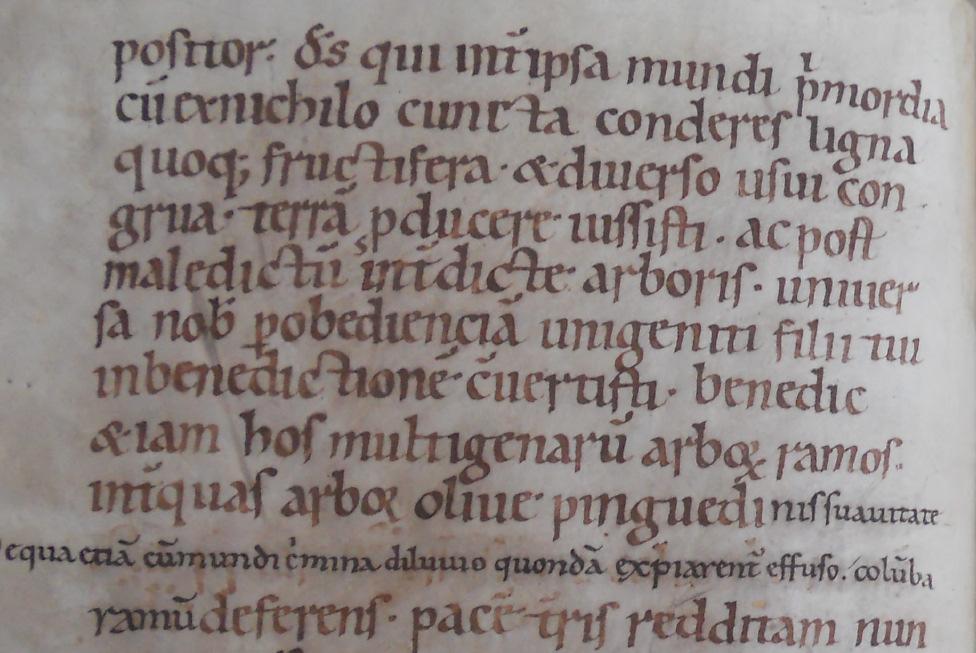 postior. d̄s qui int̄ ipsa mundi p͛mordia
cū exnichilo cuncta conderes ligna
quoq; fructifera. & diuerso usui con
grua. terrā ꝓducere iussisti. ac post
maledictū int̄dicte arboris. uniuer
sa nob̄ ꝑ obedienciā unigeniti filii tui
inbenedictionē c̄uertisti. benedic
& iam hos multigenarū arboꝝ ramos.
int̄ quas arboꝝ oliue pinguedinis suauitate
equa etiā cū mundi c͛mina diluuio quondā exp̄iarent̄ effuso. colūba
ramū deferens. pacē t̄ris redditam nun